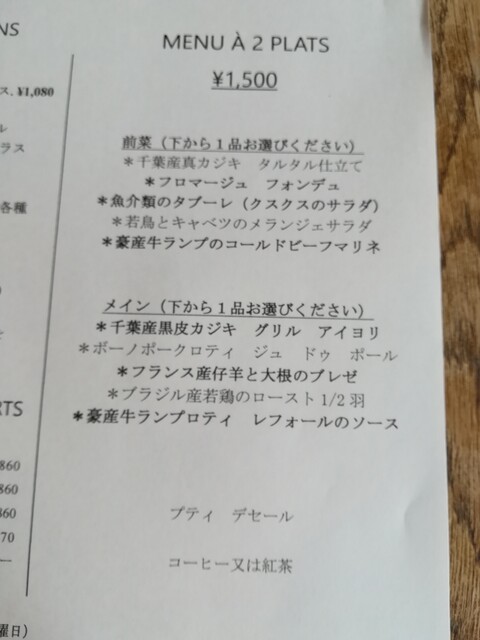 NS
ス、¥1,080
ル
ラス
各種
RTS
860
860
860
70
曜日）
MENU À 2 PLATS
¥1,500
前菜（下から１品お選びください）
＊千葉産真カジキ　タルタル仕立て
＊フロマージュ　フォンデュ
＊魚介類のタブーレ（クスクスのサラダ）
＊若鳥とキャベツのメランジェサラダ
＊豪産牛ランプのコールドビーフマリネ
メイン（下から１品お選びください）
＊千葉産黒皮カジキ　グリル　アイヨリ
＊ボーノポークロティ　ジュ　ドゥ　ポール
＊フランス産仔羊と大根のブレゼ
＊ブラジル産若鶏のロースト 1/2 羽
＊豪産牛ランプロティ　レフォールのソース
プティ　デセール
コーヒー又は紅茶